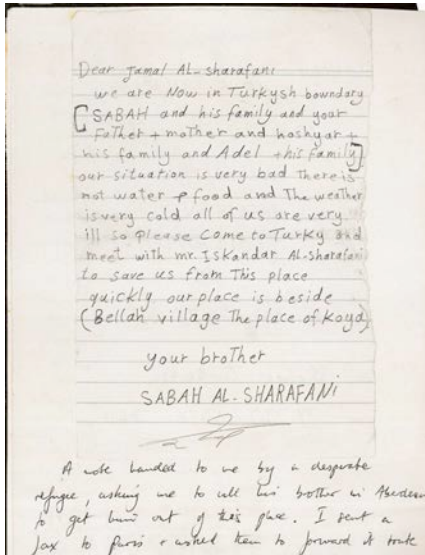 Dear Jamal AL-sharafani
we are Now in Turkysh bowndary
[SABAH and his family and your
Father + mother and hoshyar +
his family and Adel + his family]
our situation is very bad There is
not water & food and The weather
is very cold all of us are very
ill so Please Come to Turky and
meet with mr. Iskandar AL-sharafani
to save us from This place
quickly our place is beside
(Bellah village The place of Koya)
your brother
SABAH AL-SHARAFANi
A note handed to me by a desperate
refugee, asking me to call his brother in Aberdeen
to get him out of this place. I sent a
fax to Paris & asked them to forward it